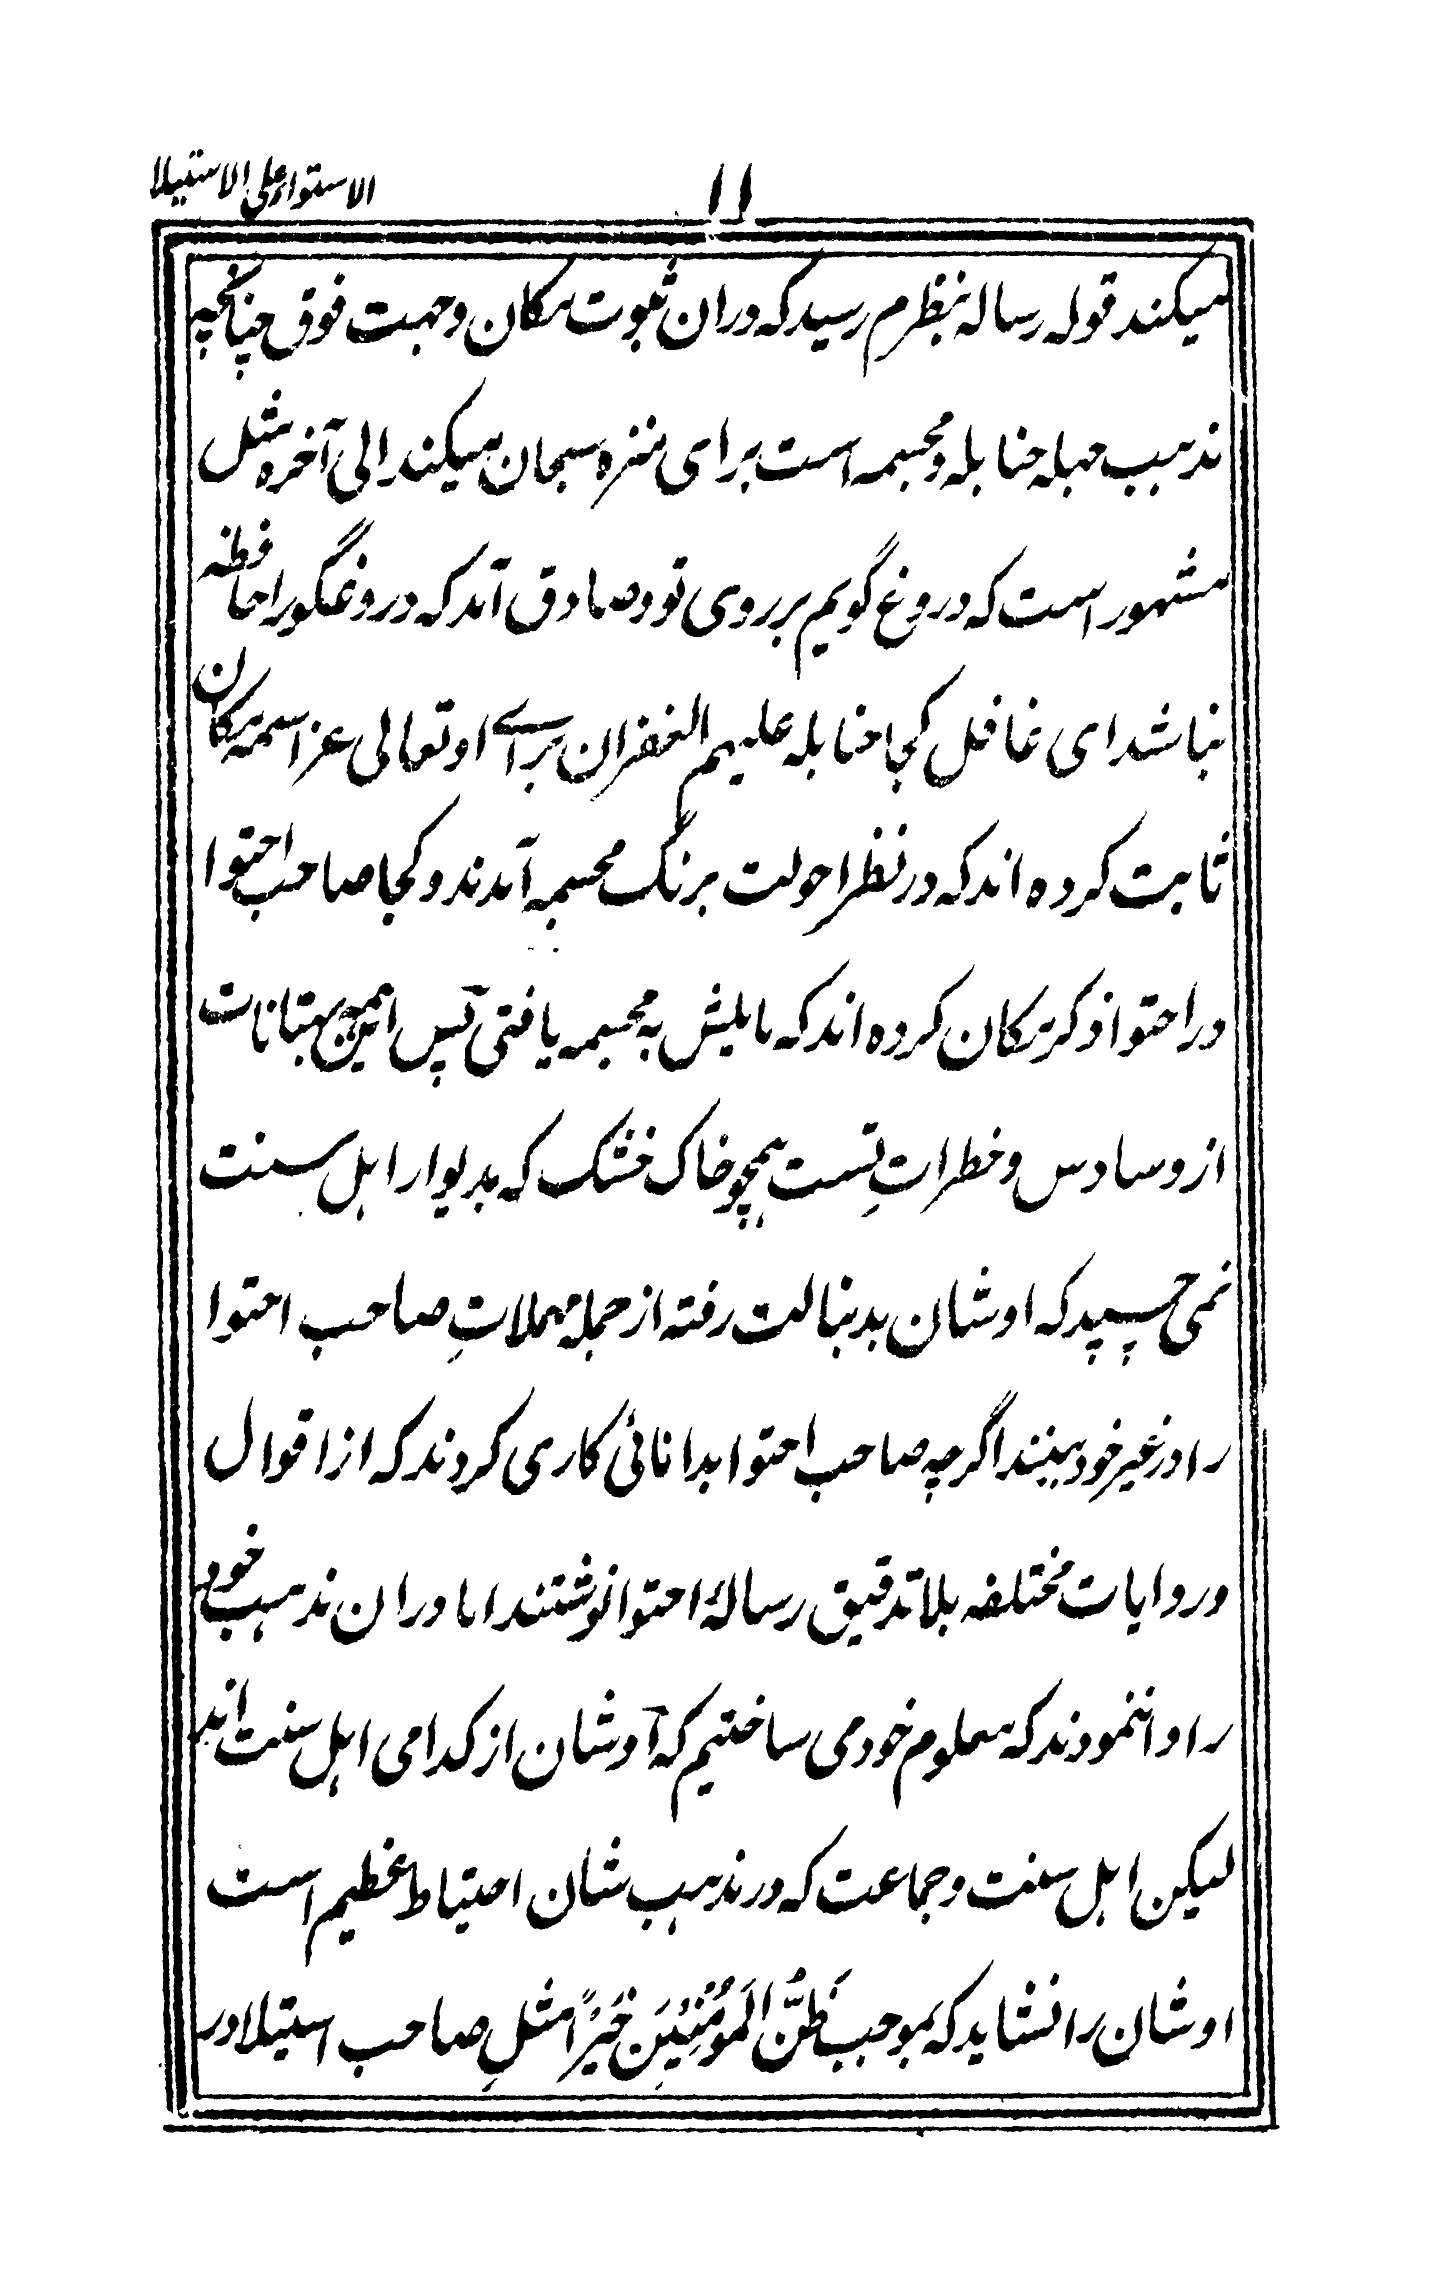 ۱۱
الاستوار علی الاستیلا
میکند قوله رساله بنظرم رسید که دران ثبوت مکان و جهت فوق چنانچه
مذهب جهله حنابله و مجسمه است برای منزه سبحان میکند الی آخره مثل
مشهور است که دروغ گویم بر روی تو و صادق آمد که دروغگو را حافظه
نباشد ای غافل کجا حنابله علیهم الغفران برای او تعالی عز اسمه مکان
ثابت کرده اند که در نظر احولت برنگ مجسمه آمدند و کجا صاحب احتوا
در احتوا ذکر مکان کرده اند که مایلش به مجسمه یافتی پس این همچ بهتانات
از وساوس و خطراتِ تست همچو خاک خشک که بدیوار اهل سنت
نمی چسپد که اوشان بدنبالت رفته از جمله مهملاتِ صاحب احتوا
را در غیر خود بینند اگرچه صاحب احتوا بدانائی کاری کردند که از اقوال
و روایات مختلفه بلا تدقیق رسالهٔ احتوا نوشتند اما دران مذهب خود
را وا ننمودند که معلوم خود می ساختیم که اوشان از کدامی اهل سنت اند
لیکن اهل سنت و جماعت که در مذهب شان احتیاط عظیم است
اوشان را نشاید که بموجب ظَنُّ الْمُؤْمِنِیْنَ خَیْرًا مثلِ صاحب استیلا در